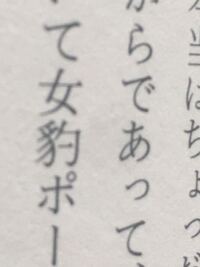 当はちょっ
らであって
て女豹ポー